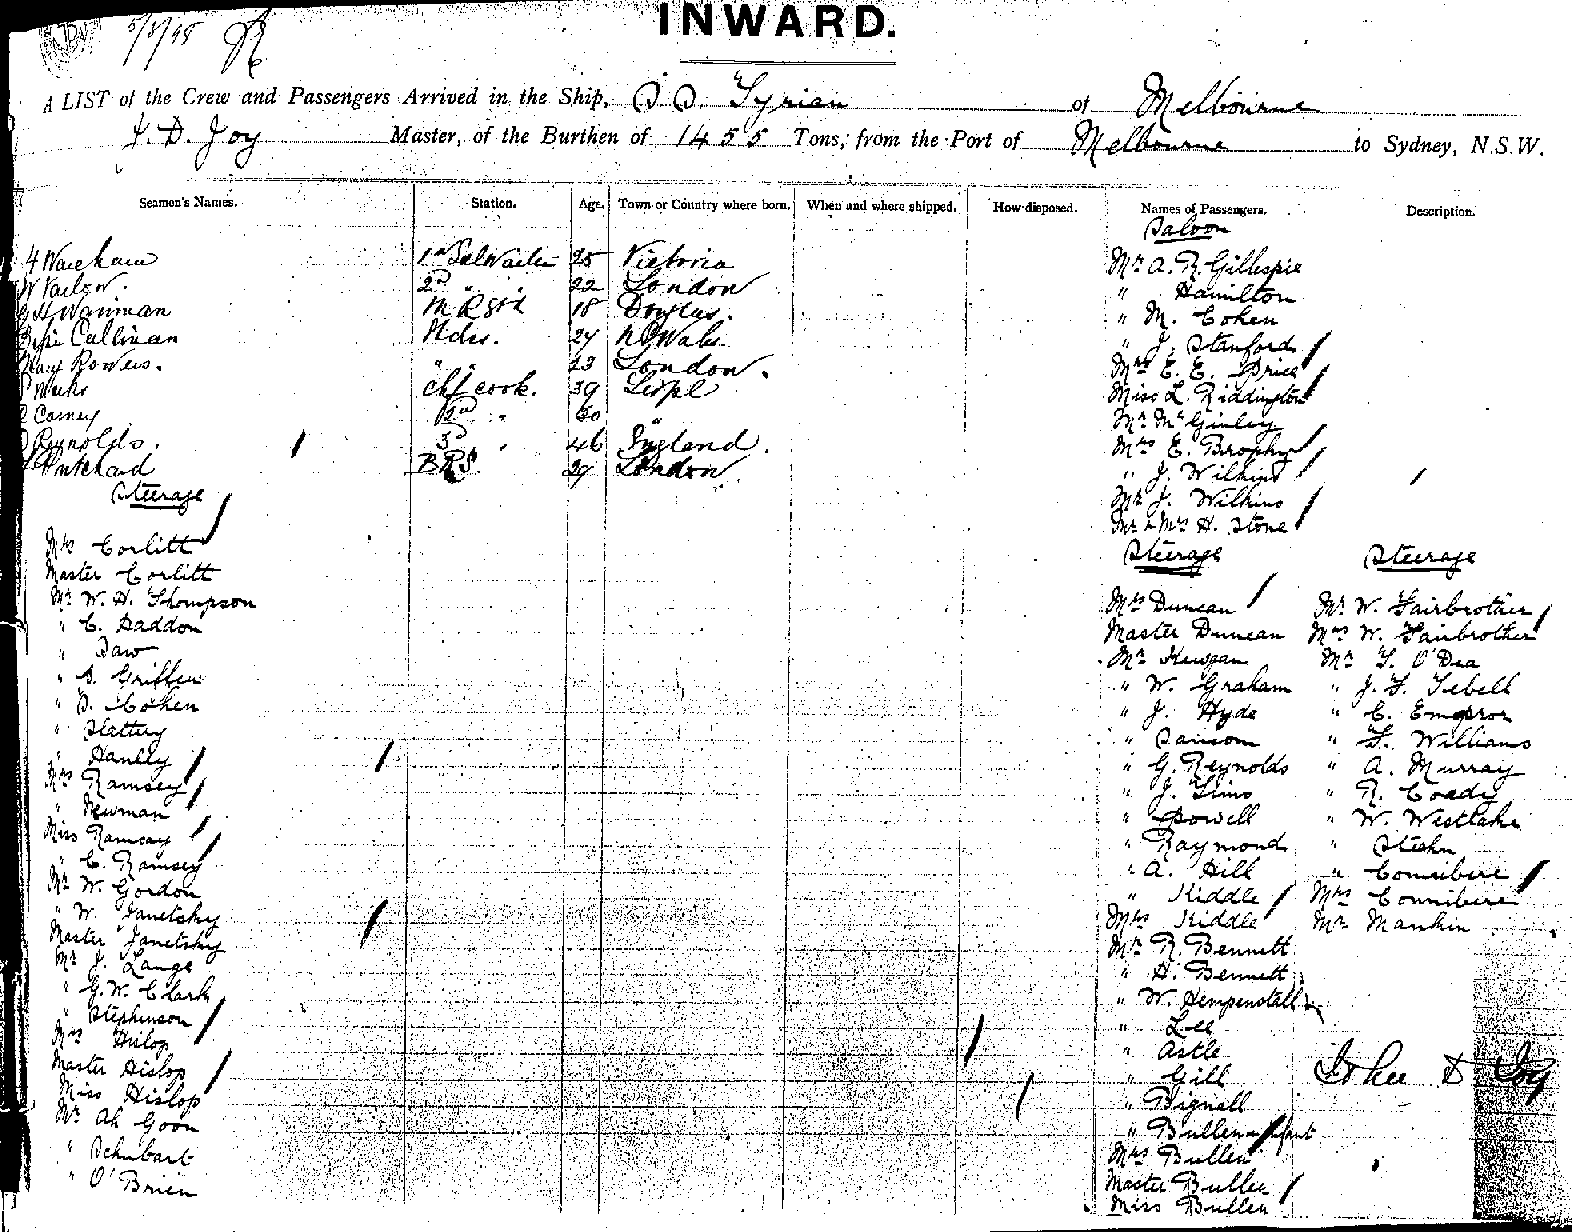 5/3/95
INWARD.
A LIST of the Crew and Passengers Arrived in the Ship, S.S. Tyrian of Melbourne
J. D. Joy Master, of the Burthen of 1455 Tons, from the Port of Melbourne to Sydney, N.S.W.
Seamen's Names. Station. Age. Town or Country where born. When and where shipped. How disposed. Names of Passengers. Description.
Saloon
25 Victoria
22 London
18 Douglas.
Calliman 24
Mary Bowers. " 23 London.
Chf cook. 39
Carney 2nd "
Reynolds. 3rd " 46 England
Pritchard London
Mr A. R. Gillespie
" Hamilton
" M. Cohen
" J. Stanford
Mrs E. E. Price
Miss L. Riddington
Mr McGinley
Mrs E. Brophy
" J. Wilkins
Mr J. Wilkins
Mr & Mrs H. Stone
Steerage
Mrs Corlitt
Master Corlitt
Mr W. H. Thompson
" C. Haddon
" Daw
" S. Griffen
" S. Cohen
" Slattery
" Hanley
Mrs Ramsey
" Newman
Miss Ramsay
" C. Ramsey
Mr W. Gordon
" W. Janetsky
Master Janetsky
Mr J. Lange
" G. W. Clark
" Stephinson
Mrs Hislop
Master Hislop
Miss Hislop
Mr Ah Goon
" Schubart
" O'Brien
Steerage
Mrs Duncan
Master Duncan
Mr Keegan
" W. Graham
" J. Hyde
" Sansom
" G. Reynolds
" J. Sims
" Powell
" Raymond
" A. Hill
" Kiddle
Mrs Kiddle
Mr R. Bennett
" H. Bennett
" W. Hempenstall
" Lee
" Astle
" Gill
" Bignell
" Bullen & infant
Mrs Bullen
Master Bullen
Miss Bullen
Steerage
Mr W. Fairbrother
Mrs W. Fairbrother
Mr T. O'Dea
" J. F. Tebell
" C. Emperor
" F. Williams
" A. Murray
" R. Coady
" W. Westlake
" Stehn
" Connibere
Mrs Connibere
Mr Mankin
John D. Joy